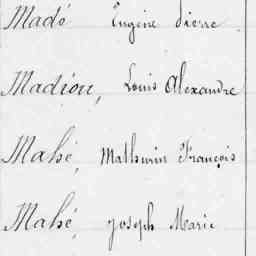 Madé Eugène Pierre
Madiou, Louis Alexandre
Mahé, Mathurin François
Mahé, Joseph Marie